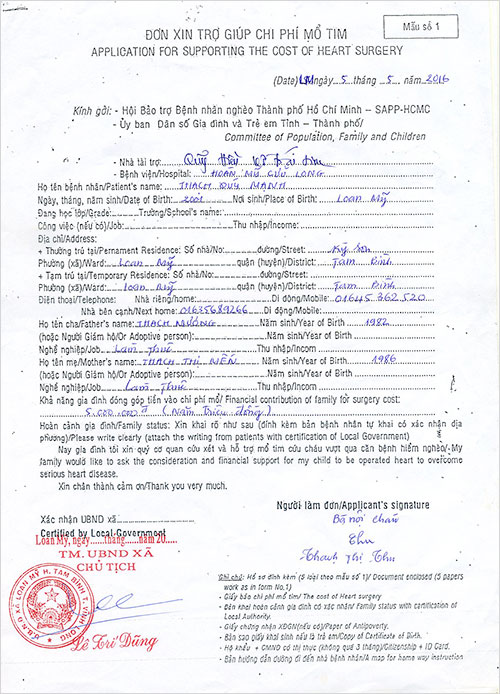 Mẫu số 1
ĐƠN XIN TRỢ GIÚP CHI PHÍ MỔ TIM
APPLICATION FOR SUPPORTING THE COST OF HEART SURGERY
(Date) ngày 5 tháng 5 năm 2016
Kính gởi: - Hội Bảo trợ Bệnh nhân nghèo Thành phố Hồ Chí Minh – SAPP-HCMC
- Ủy ban Dân số Gia đình và Trẻ em Tỉnh – Thành phố/
Committee of Population, Family and Children
- Nhà tài trợ: Quỹ Hiểu
- Bệnh viện/Hospital: HOÀN MỸ CỬU LONG
Họ tên bệnh nhân/Patient's name: THẠCH QUY MẠNH
Ngày, tháng, năm sinh/Date of Birth: Nơi sinh/Place of Birth: Loan Mỹ
Đang học lớp/Grade: Trường/School's name:
Công việc (nếu có)/Job: Thu nhập/Income:
Địa chỉ/Address:
+ Thường trú tại/Pernament Residence: Số nhà/No: đường/Street: Kỳ Son
Phường (xã)/Ward: Loan Mỹ quận (huyện)/District: Tam Bình
+ Tạm trú tại/Temporary Residence: Số nhà/No: đường/Street:
Phường (xã)/Ward: Loan Mỹ quận (huyện)/District: Tam Bình
Điện thoại/Telephone: Nhà riêng/home: Di động/Mobile: 01645 362 520
Nhà bên cạnh/Next home: 01635689266 Di động/Mobile:
Họ tên cha/Father's name: THẠCH NƯƠNG Năm sinh/Year of Birth 1982
(hoặc Người Giám hộ/Or Adoptive person): Năm sinh/Year of Birth
Nghề nghiệp/Job Làm Thuê Thu nhập/Incom
Họ tên mẹ/Mother's name: THẠCH THỊ NÊN Năm sinh/Year of Birth 1986
(hoặc Người Giám hộ/Or Adoptive person) Năm sinh/Year of Birth
Nghề nghiệp/Job Làm Thuê Thu nhập/Incom
Khả năng gia đình đóng góp tiền vào chi phí mổ/ Financial contribution of family for surgery cost:
5.000.000đ (Năm triệu đồng)
Hoàn cảnh gia đình/Family status: Xin khai rõ như sau (đính kèm bản bệnh nhân tự khai có xác nhận địa
phương)/Please write clearly (attach the writing from patients with certification of Local Government)
Nay gia đình tôi xin quý cơ quan cứu xét và hỗ trợ mổ tim cứu cháu vượt qua cơn bệnh hiểm nghèo/ My
family would like to ask the consideration and financial support for my child to be operated heart to overcome
serious heart disease.
Xin chân thành cảm ơn/Thank you very much.
Người làm đơn/Applicant's signature
Bà nội cháu
Thu
Thạch Thị Thu
Xác nhận UBND xã
Certified by Local Government
Loan Mỹ, ngày......tháng.....năm 20.....
TM. UBND XÃ
CHỦ TỊCH
U.B.N.D XÃ LOAN MỸ H. TAM BÌNH T. VĨNH LONG
Lê Trí Dũng
Ghi chú: Hồ sơ đính kèm (5 loại theo mẫu số 1)/ Document enclosed (5 papers
work as in form No.1)
- Giấy báo chi phí mổ tim/ The cost of Heart surgery
- Đơn khai hoàn cảnh gia đình có xác nhận/ Family status with certification of
Local Authority.
- Giấy chứng nhận XĐGN(nếu có)/Paper of Antipoverty.
- Bản sao giấy khai sinh nếu là trẻ em/Copy of Certificate of Birth.
- Hộ khẩu + CMND có thị thực (không quá 3 tháng)/Citizenship + ID Card.
- Bản hướng dẫn đường đi đến nhà bệnh nhân/A map for home way instruction